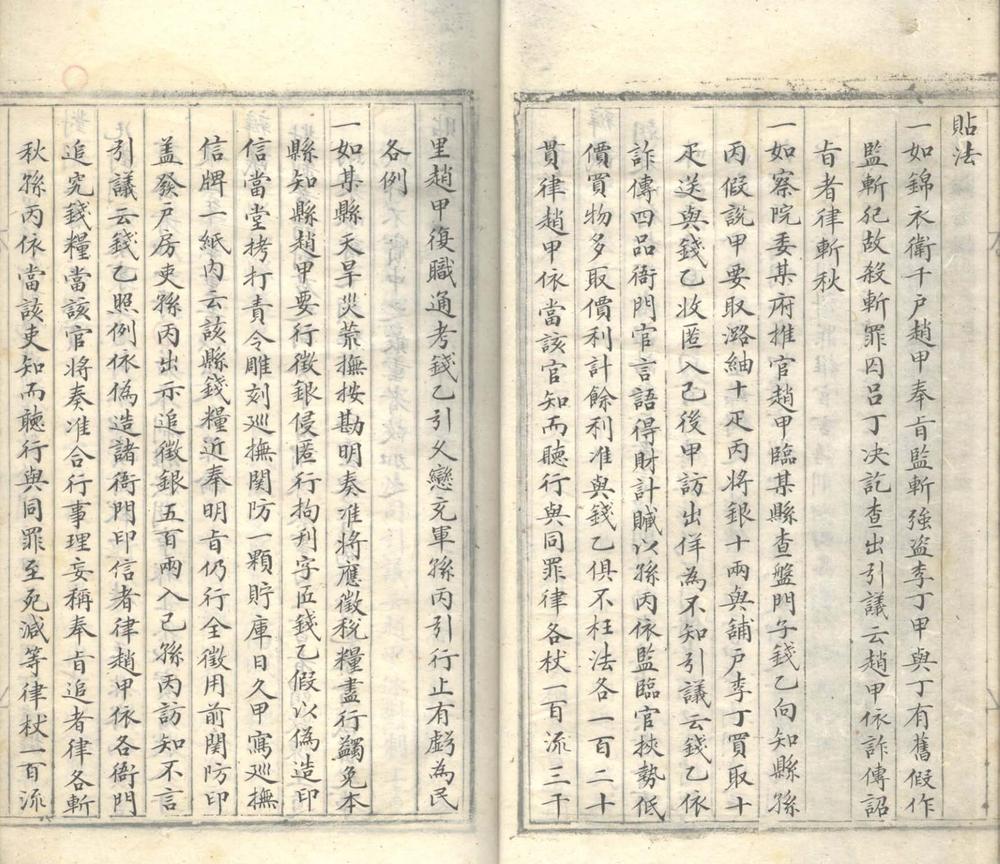 貼法
一如錦衣衛千户趙甲奉旨監斬強盗李丁甲與丁有舊假作
監斬犯故殺斬罪囚吕丁决訖查出引議云趙甲依詐傳詔
旨者律斬秋
一如察院委某府推官趙甲臨某縣查盤門子錢乙向知縣孫
丙假說甲要取潞紬十疋丙將銀十兩與舖户李丁買取十
疋送與錢乙收匿入己後甲訪出佯為不知引議云錢乙依
詐傳四品衙門官言語得財計贓以孫丙依監臨官挾勢低
價買物多取價利計餘利准與錢乙俱不枉法各一百二十
貫律趙甲依當該官知而聽行與同罪律各杖一百流三千
里趙甲復職通考錢乙引乂戀充軍孫丙引行止有虧為民
各例
一如某縣天旱災荒撫按勘明奏准將應徵税糧盡行蠲免本
縣知縣趙甲要行徵銀侵匿行拘刋字匠錢乙假以偽造印
信當堂拷打責令雕刻巡撫関防一顆貯庫日久甲寫巡撫
信牌一紙内云該縣錢糧近奉明旨仍行全徵用前関防印
盖發户房吏孫丙出示追徵銀五百兩入己孫丙訪知不言
引議云錢乙照例依偽造諸衙門印信者律趙甲依各衙門
追究錢糧當該官將奏准合行事理妄稱奉旨追者律各斬
秋孫丙依當該吏知而聽行與同罪至死減等律杖一百流